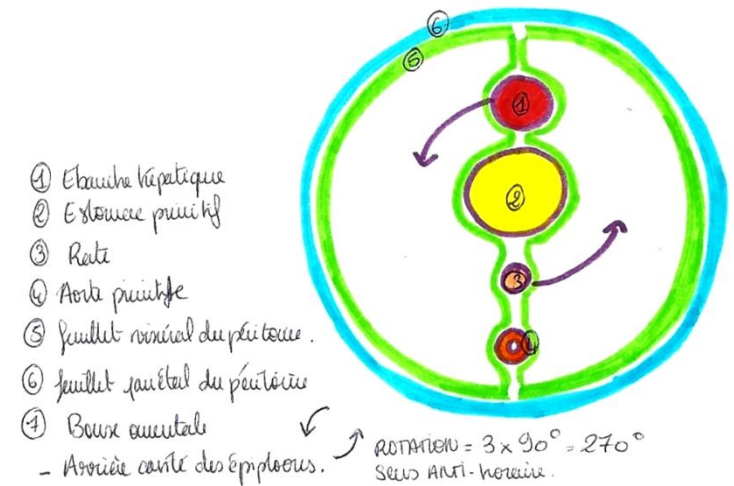 6
5
1
2
3
4
① Ebauche hépatique
② Estomac primitif
③ Rate
④ Aorte primitive
⑤ feuillet viscéral du péritoine.
⑥ feuillet pariétal du péritoine
⑦ Bourse omentale
- Arrière cavité des épiploons.
ROTATION = 3 x 90° = 270°
Sens ANTI-horaire.